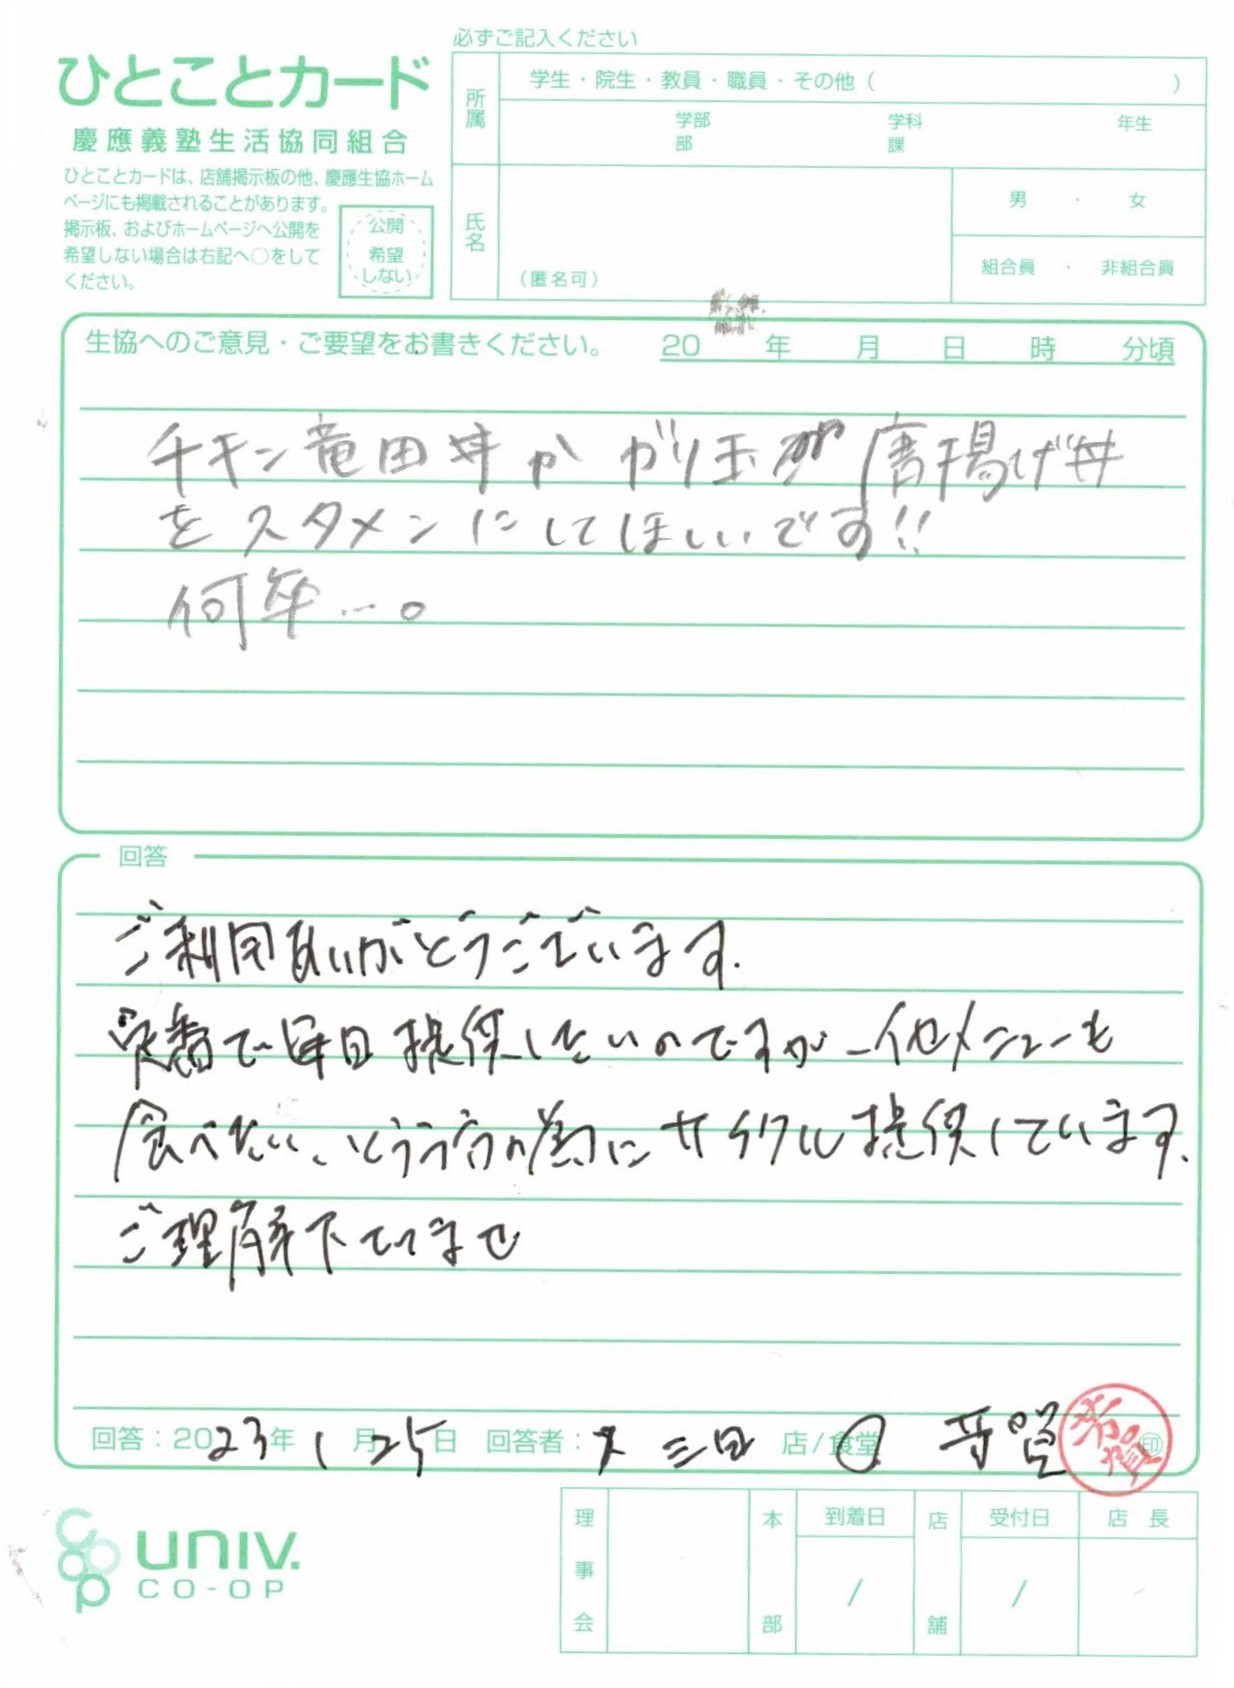 必ずご記入ください
ひとことカード
慶應義塾生活協同組合
ひとことカードは、店舗掲示板の他、慶應生協ホーム
ページにも掲載されることがあります。
掲示板、およびホームページへ公開を
希望しない場合は右記へ○をして
ください。
公開
希望
しない
所属
学生・院生・教員・職員・その他(　)
学部 学科 年生
部 課
氏名
(匿名可)
男 ・ 女
組合員 ・ 非組合員
生協へのご意見・ご要望をお書きください。 20 年 月 日 時 分頃
チキン竜田丼か ガリ玉 唐揚げ丼
をスタメンにしてほしいです!!
何卒…。
回答
ご利用ありがとうございます.
定番で毎日提供したいのですが 他メニューも
食べたい、という方の為にサイクル提供しています.
ご理解下さいませ
回答:2023年1月25日 回答者: 三田 店/食堂 芳賀
芳賀
印
univ.
CO-OP
理事会
本部
到着日
/
店舗
受付日
/
店長